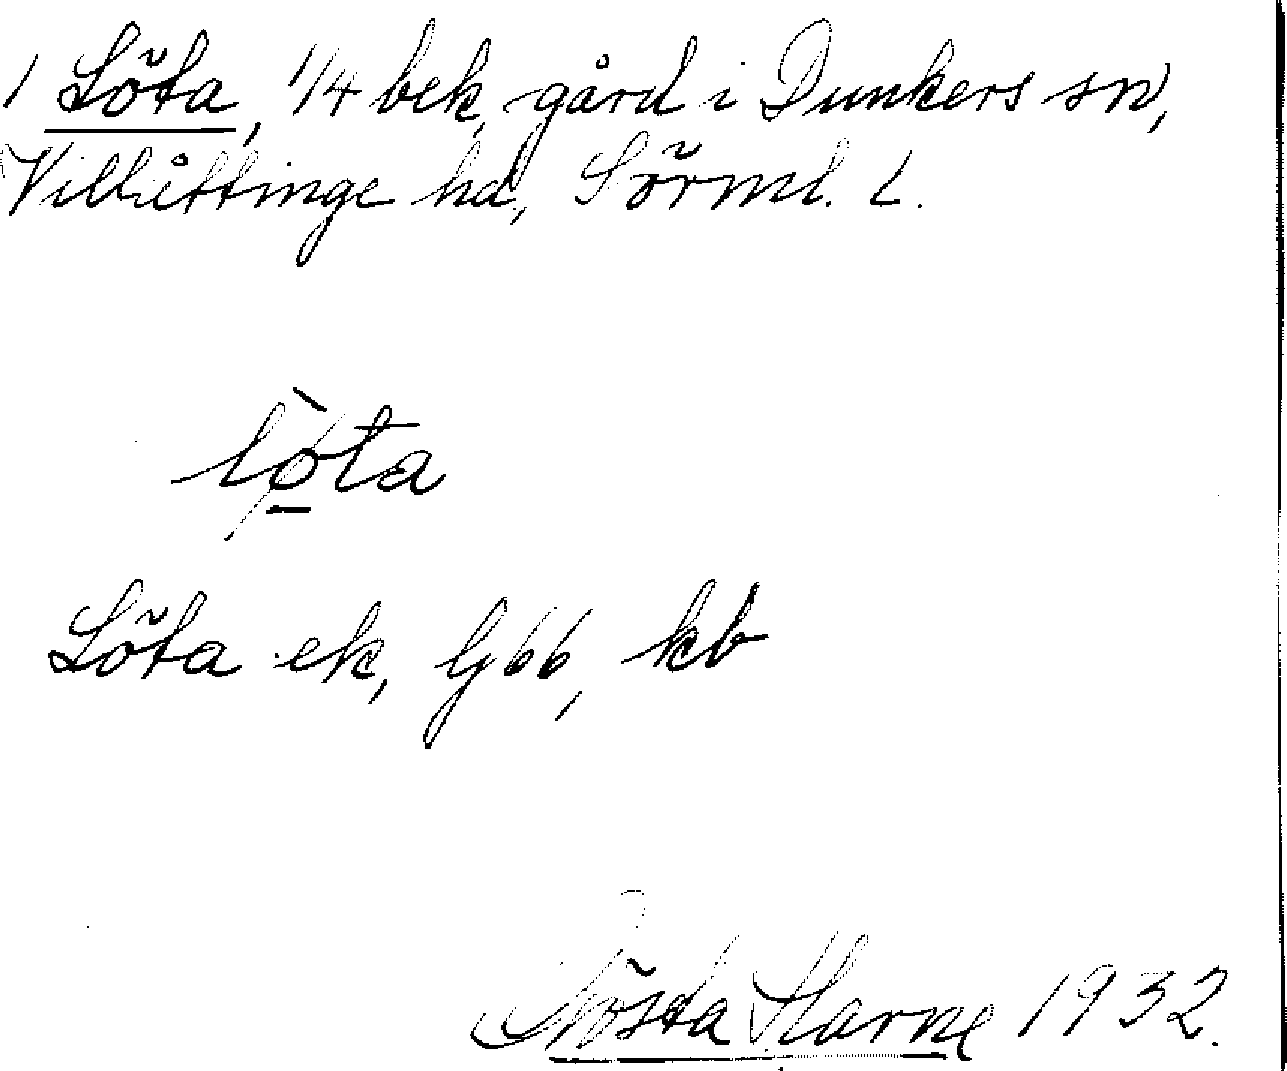 1 Löta, 1/4 bek, gård i Dunkers sn,
Villåttinge hd, Sörml. L.
lø̀ta
Löta ek, G66, kb
Gösta Harne 1932.